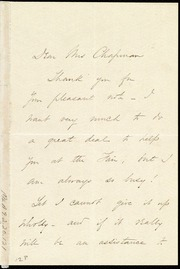 Dear Mrs Chapman
Thank you for
your pleasant note - I
want very much to do
a great deal to help
you at the Fair, but I
am always so busy!
Yet I cannot give it up
wholly - and if it really
will be an assistance to